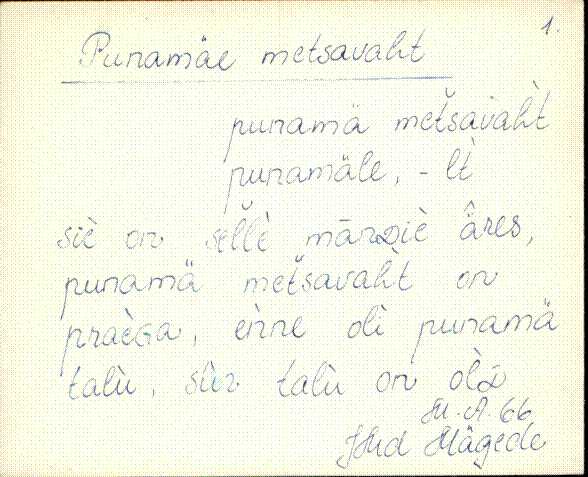 1.
Punamäe metsavaht
punamä metšavàht̀
punamäle, - lt̀
siè on sel̆l̆è mārᴅiè âres,
punamä metšavàht̀ on
praèɢa, eǹne olì punamä
talù, sûr talù on òlᴅ
M. A. 66
Hꞁd Mägede